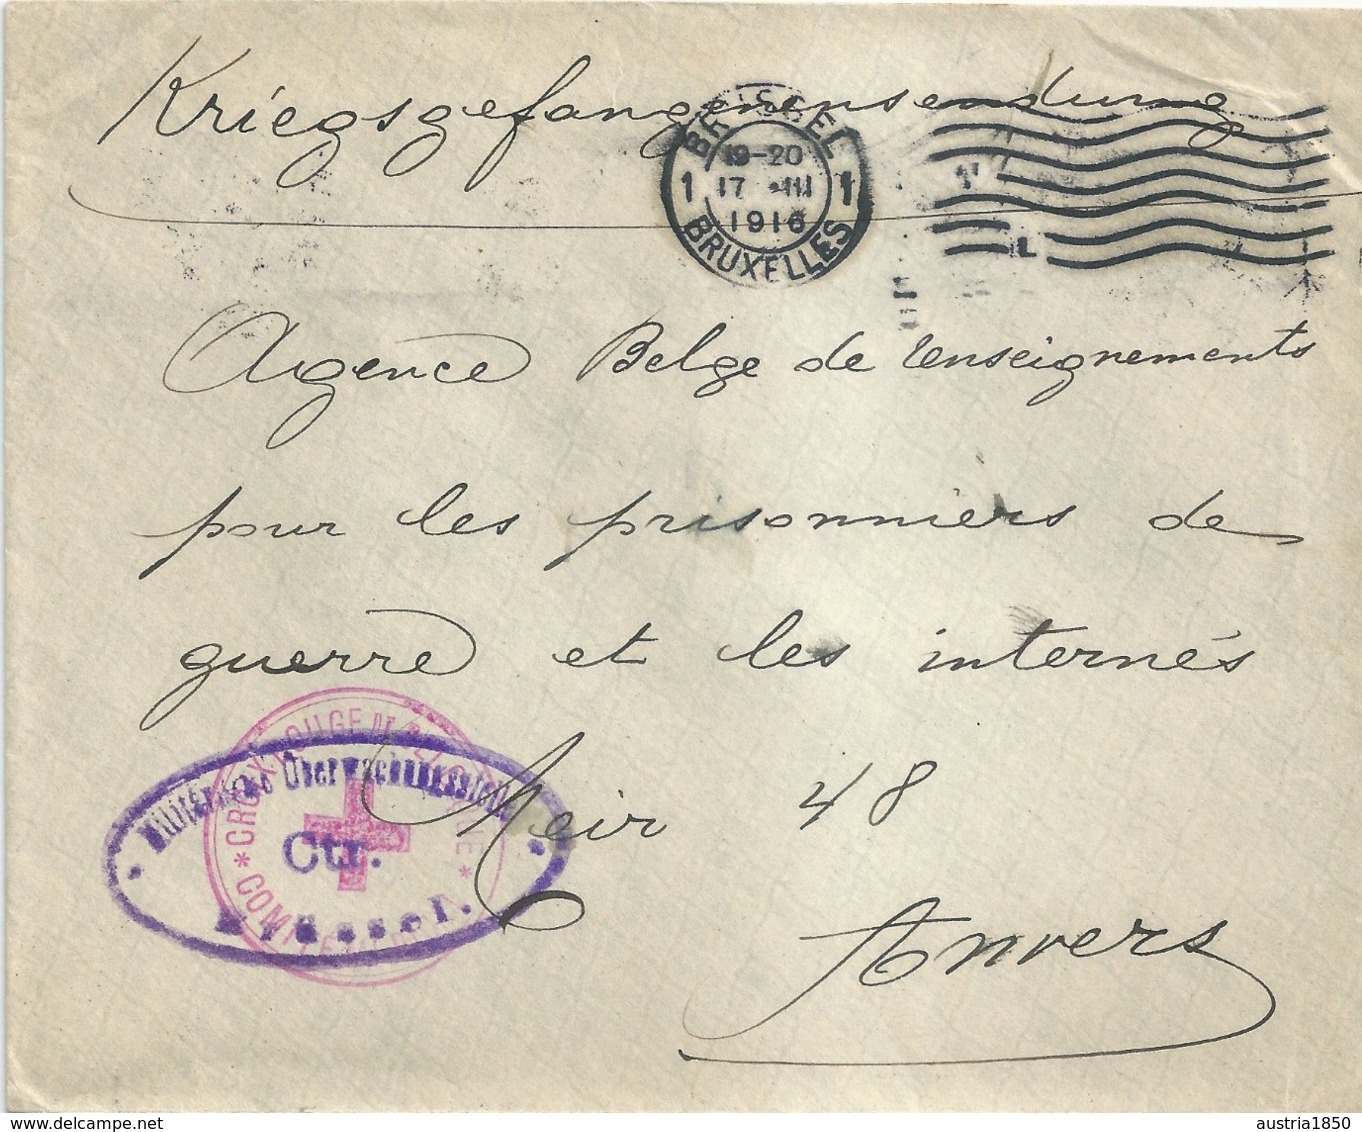 Kriegsgefangenensendung
BRÜSSEL
19-20
1 17 III 1
1916
BRUXELLES
L
Agence Belge de renseignements
pour les prisonniers de
guerre et les internés
Meir 48
Anvers
CROIX ROUGE DE BELGIQUE
* COMITE *
Militärische Überwachungsstelle
Ctr.
Brüssel.
www.delcampe.net
austria1850